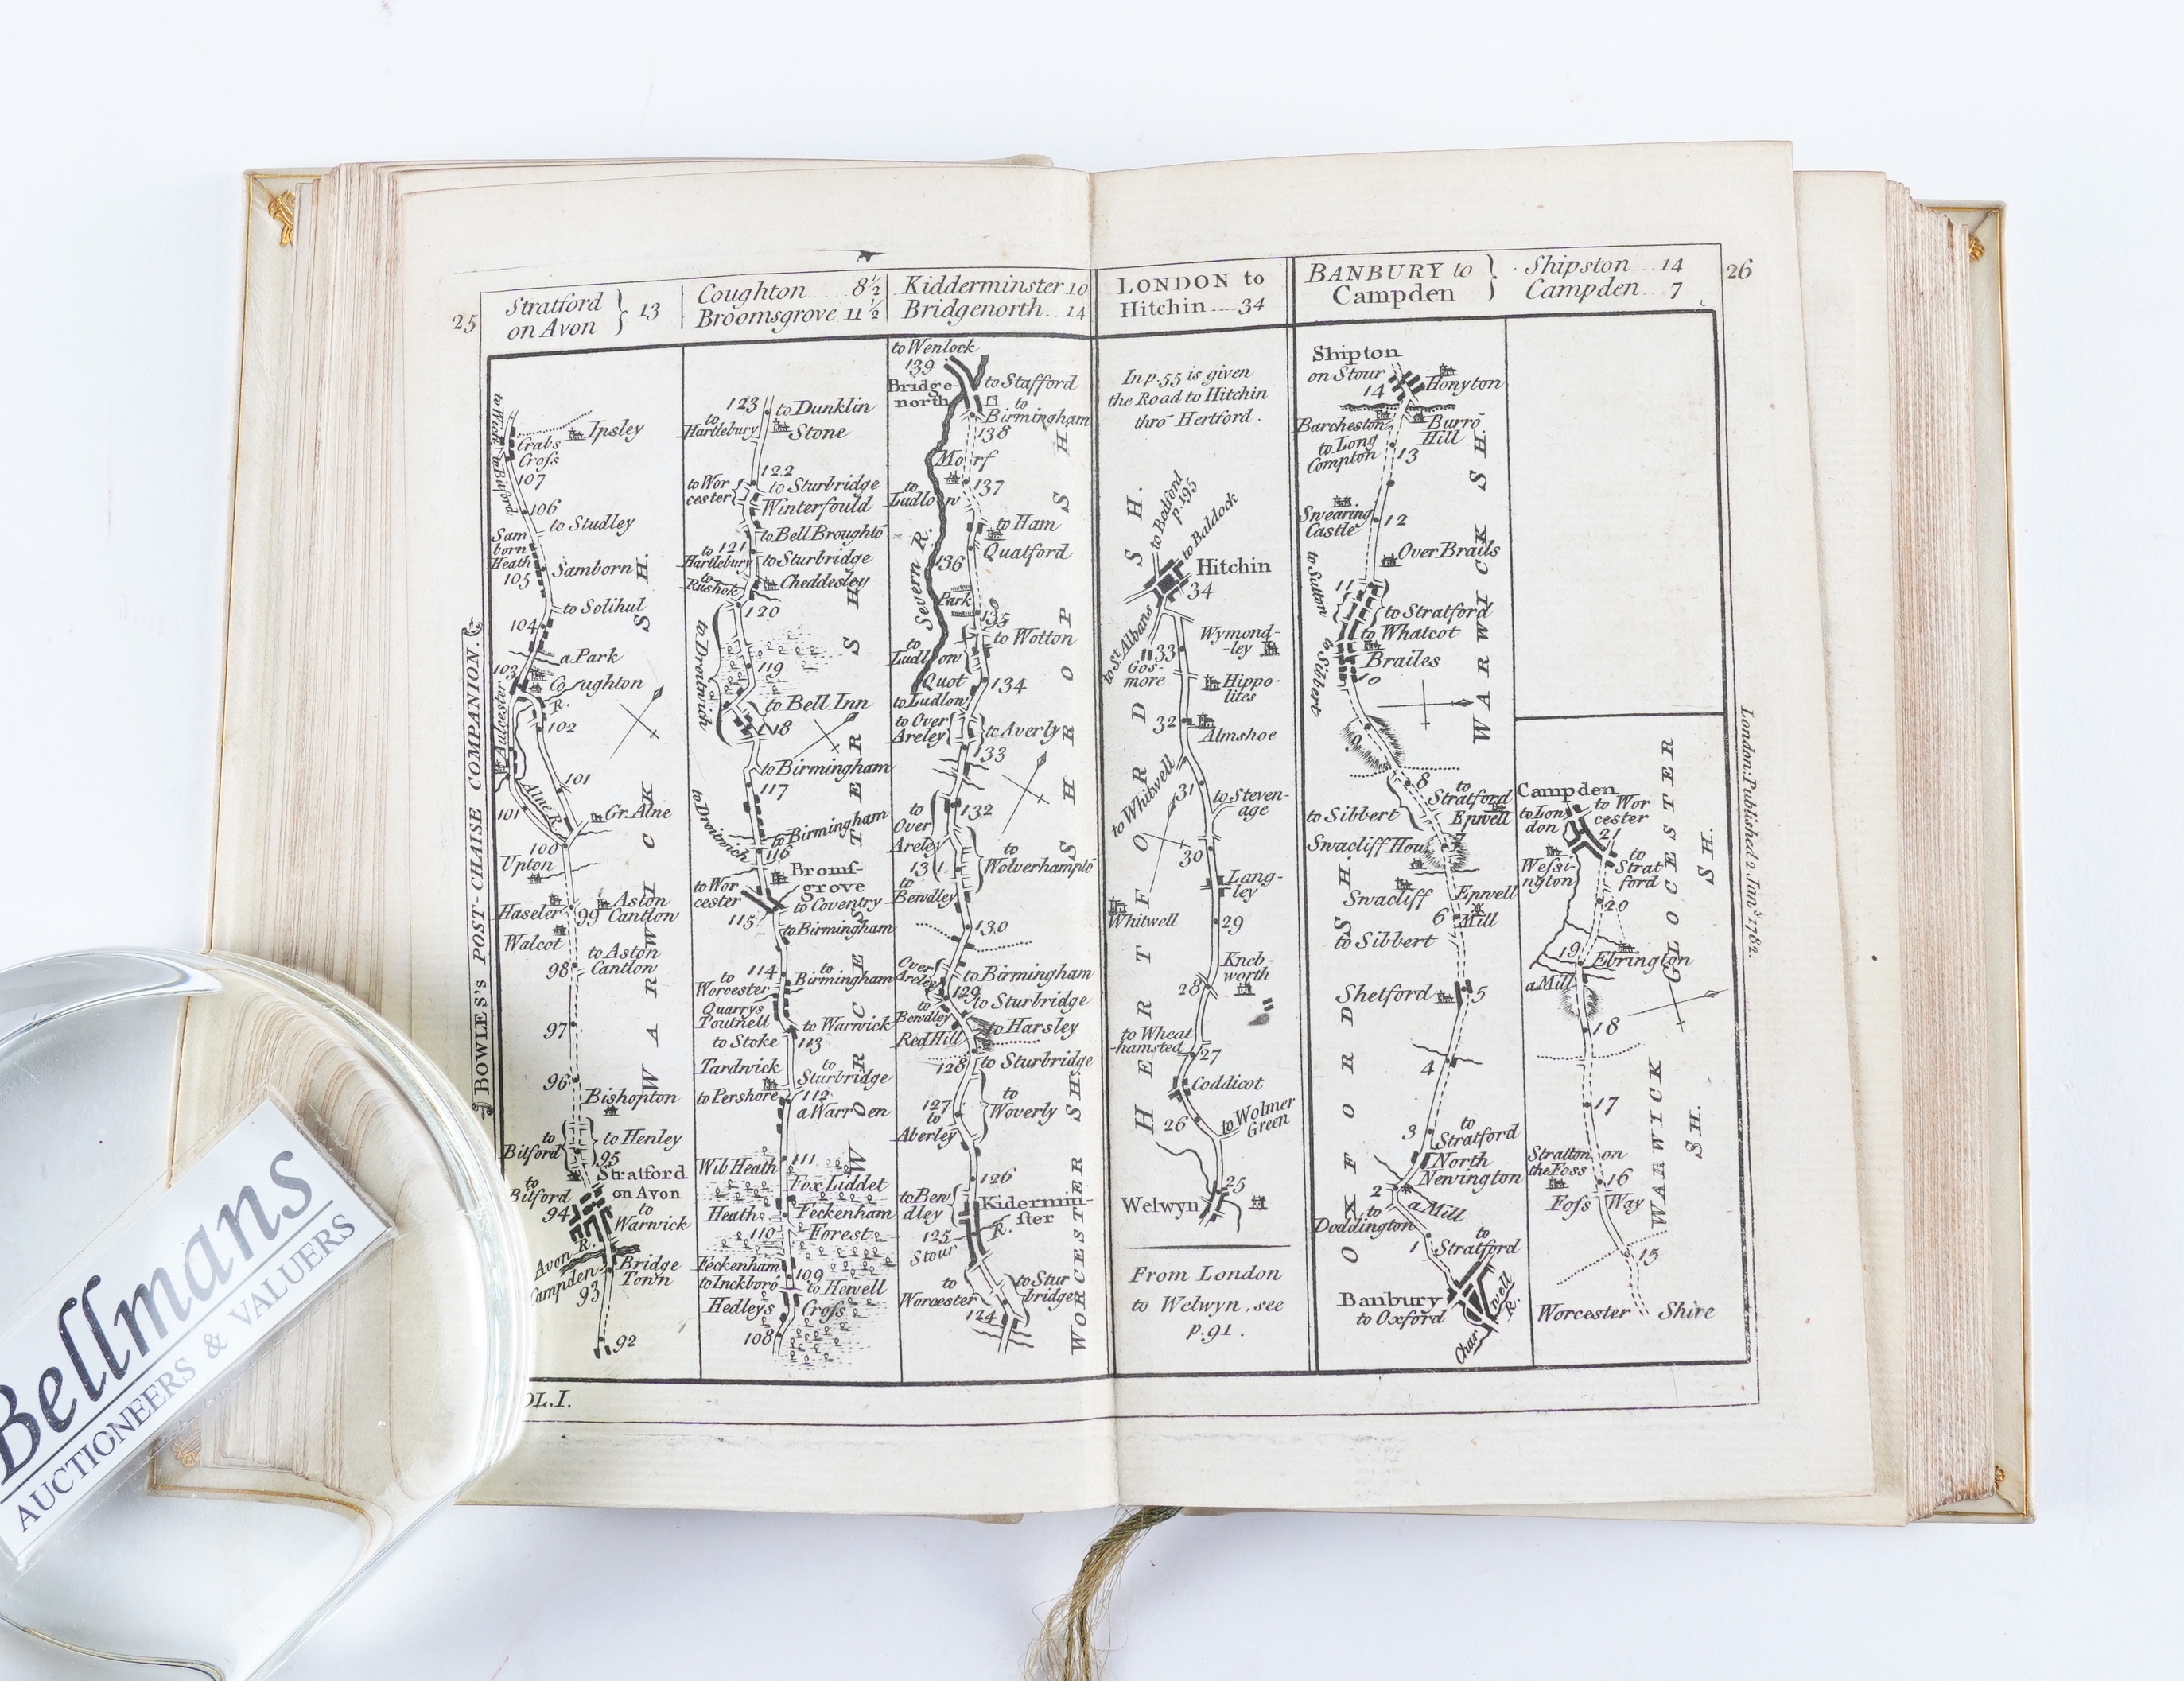 25
Stratford
on Avon } 13
Coughton .... 8½
Broomsgrove 11½
Kidderminster 10
Bridgenorth .. 14
LONDON to
Hitchin .... 34
BANBURY to
Campden
Shipston ... 14
Campden ... 7
26
BOWLES's POST-CHAISE COMPANION.
Ipsley
Crabs
Cross
to Bitford
107
106
to Studley
Sam
born
Heath
105
Samborn
to Solihul
104
a Park
103
Coughton
R.
102
to Aulcester
101
Alne R.
101
Gr. Alne
100
Upton
Aston
Cantlow
Haseler
99
Walcot
to Aston
Cantlow
98
97
96
Bishopton
to
Bitford
to Henley
95
Stratford
on Avon
to
Bitford
94
to
Warwick
Avon R.
Campden
Bridge
Town
93
92
WARWICK SH.
123
to Dunklin
to
Hartlebury
Stone
122
to Wor
cester
to Sturbridge
Winterfould
to Bell Broughto
to
Hartlebury
121
to Sturbridge
to
Rushok
Cheddesley
120
to Droitwich
119
to Bell Inn
118
to Birmingham
117
to Droitwich
to Birmingham
116
Bromf-
grove
to Wor
cester
to Coventry
115
to Birmingham
114
to
Worcester
to
Birmingham
Quarrys
Toutnell
to Warwick
to Stoke
113
Tardwick
to
Sturbridge
to Pershore
112
a Warren
111
Wib Heath
Fox Liddet
Heath
Feckenham
110
Forest
Feckenham
109
to Inckboro
to Hewell
Hedleys
Cross
108
WORCESTER SH.
to Wenlock
139
Bridge-
north
to Stafford
to
Birmingham
138
Morf
137
to
Ludlow
to Ham
Quatford
Severn R.
136
Park
135
to Wotton
to
Ludlow
Quot
134
to Ludlow
to Over
Areley
to Averly
133
to
Over
Areley
132
to
Wolverhampto
131
to
Bewdley
130
Over
Areley
to Birmingham
129
to Sturbridge
to
Bewdley
to Harsley
Red Hill
128
to Sturbridge
127
to
Woverly
to
Aberley
126
to Bew
dley
Kidermin-
ster
125
R.
Stour
to
Worcester
to Stur
bridge
124
SHROPSH.
WORCESTER SH.
In p. 55 is given
the Road to Hitchin
thro Hertford.
to Bedford
p. 195
to Baldock
Hitchin
34
to St Albans
33
Wymond-
-ley
Gos-
more
Hippo-
lites
32
Almshoe
to Whitwell
31
to Steven-
age
30
Lang-
ley
Whitwell
29
Kneb-
worth
28
to Wheat
-hamsted
27
Coddicot
26
to Wolmer
Green
25
Welwyn
HERTFORDSH.
From London
to Welwyn, see
p. 91.
Shipton
on Stour
14
Honyton
Barcheston
Burro
Hill
to Long
Compton
13
Swearing
Castle
12
Over Brails
to Sutton
11
to Stratford
to Whatcot
to Sibbert
Brailes
10
9
8
to
Stratford
Epwell
to Sibbert
7
Swacliff Hou.
Swacliff
Epwell
Mill
6
to Sibbert
Shetford
5
4
3
to
Stratford
North
Newington
2
a Mill
to
Doddington
1
to
Stratford
Banbury
to Oxford
Charwell
R.
OXFORDSH.
WARWICK SH.
Campden
to Lon
don
to Wor
cester
21
Wessi-
ngton
to
Strat
ford
20
19
Ebrington
a Mill
18
17
Stratton on
the Foss
16
Foss Way
15
Worcester Shire
GLOCESTER
SH.
WARWICK
SH.
London: Published 2 Jany. 1782.
OL. I.
Bellmans
AUCTIONEERS & VALUERS